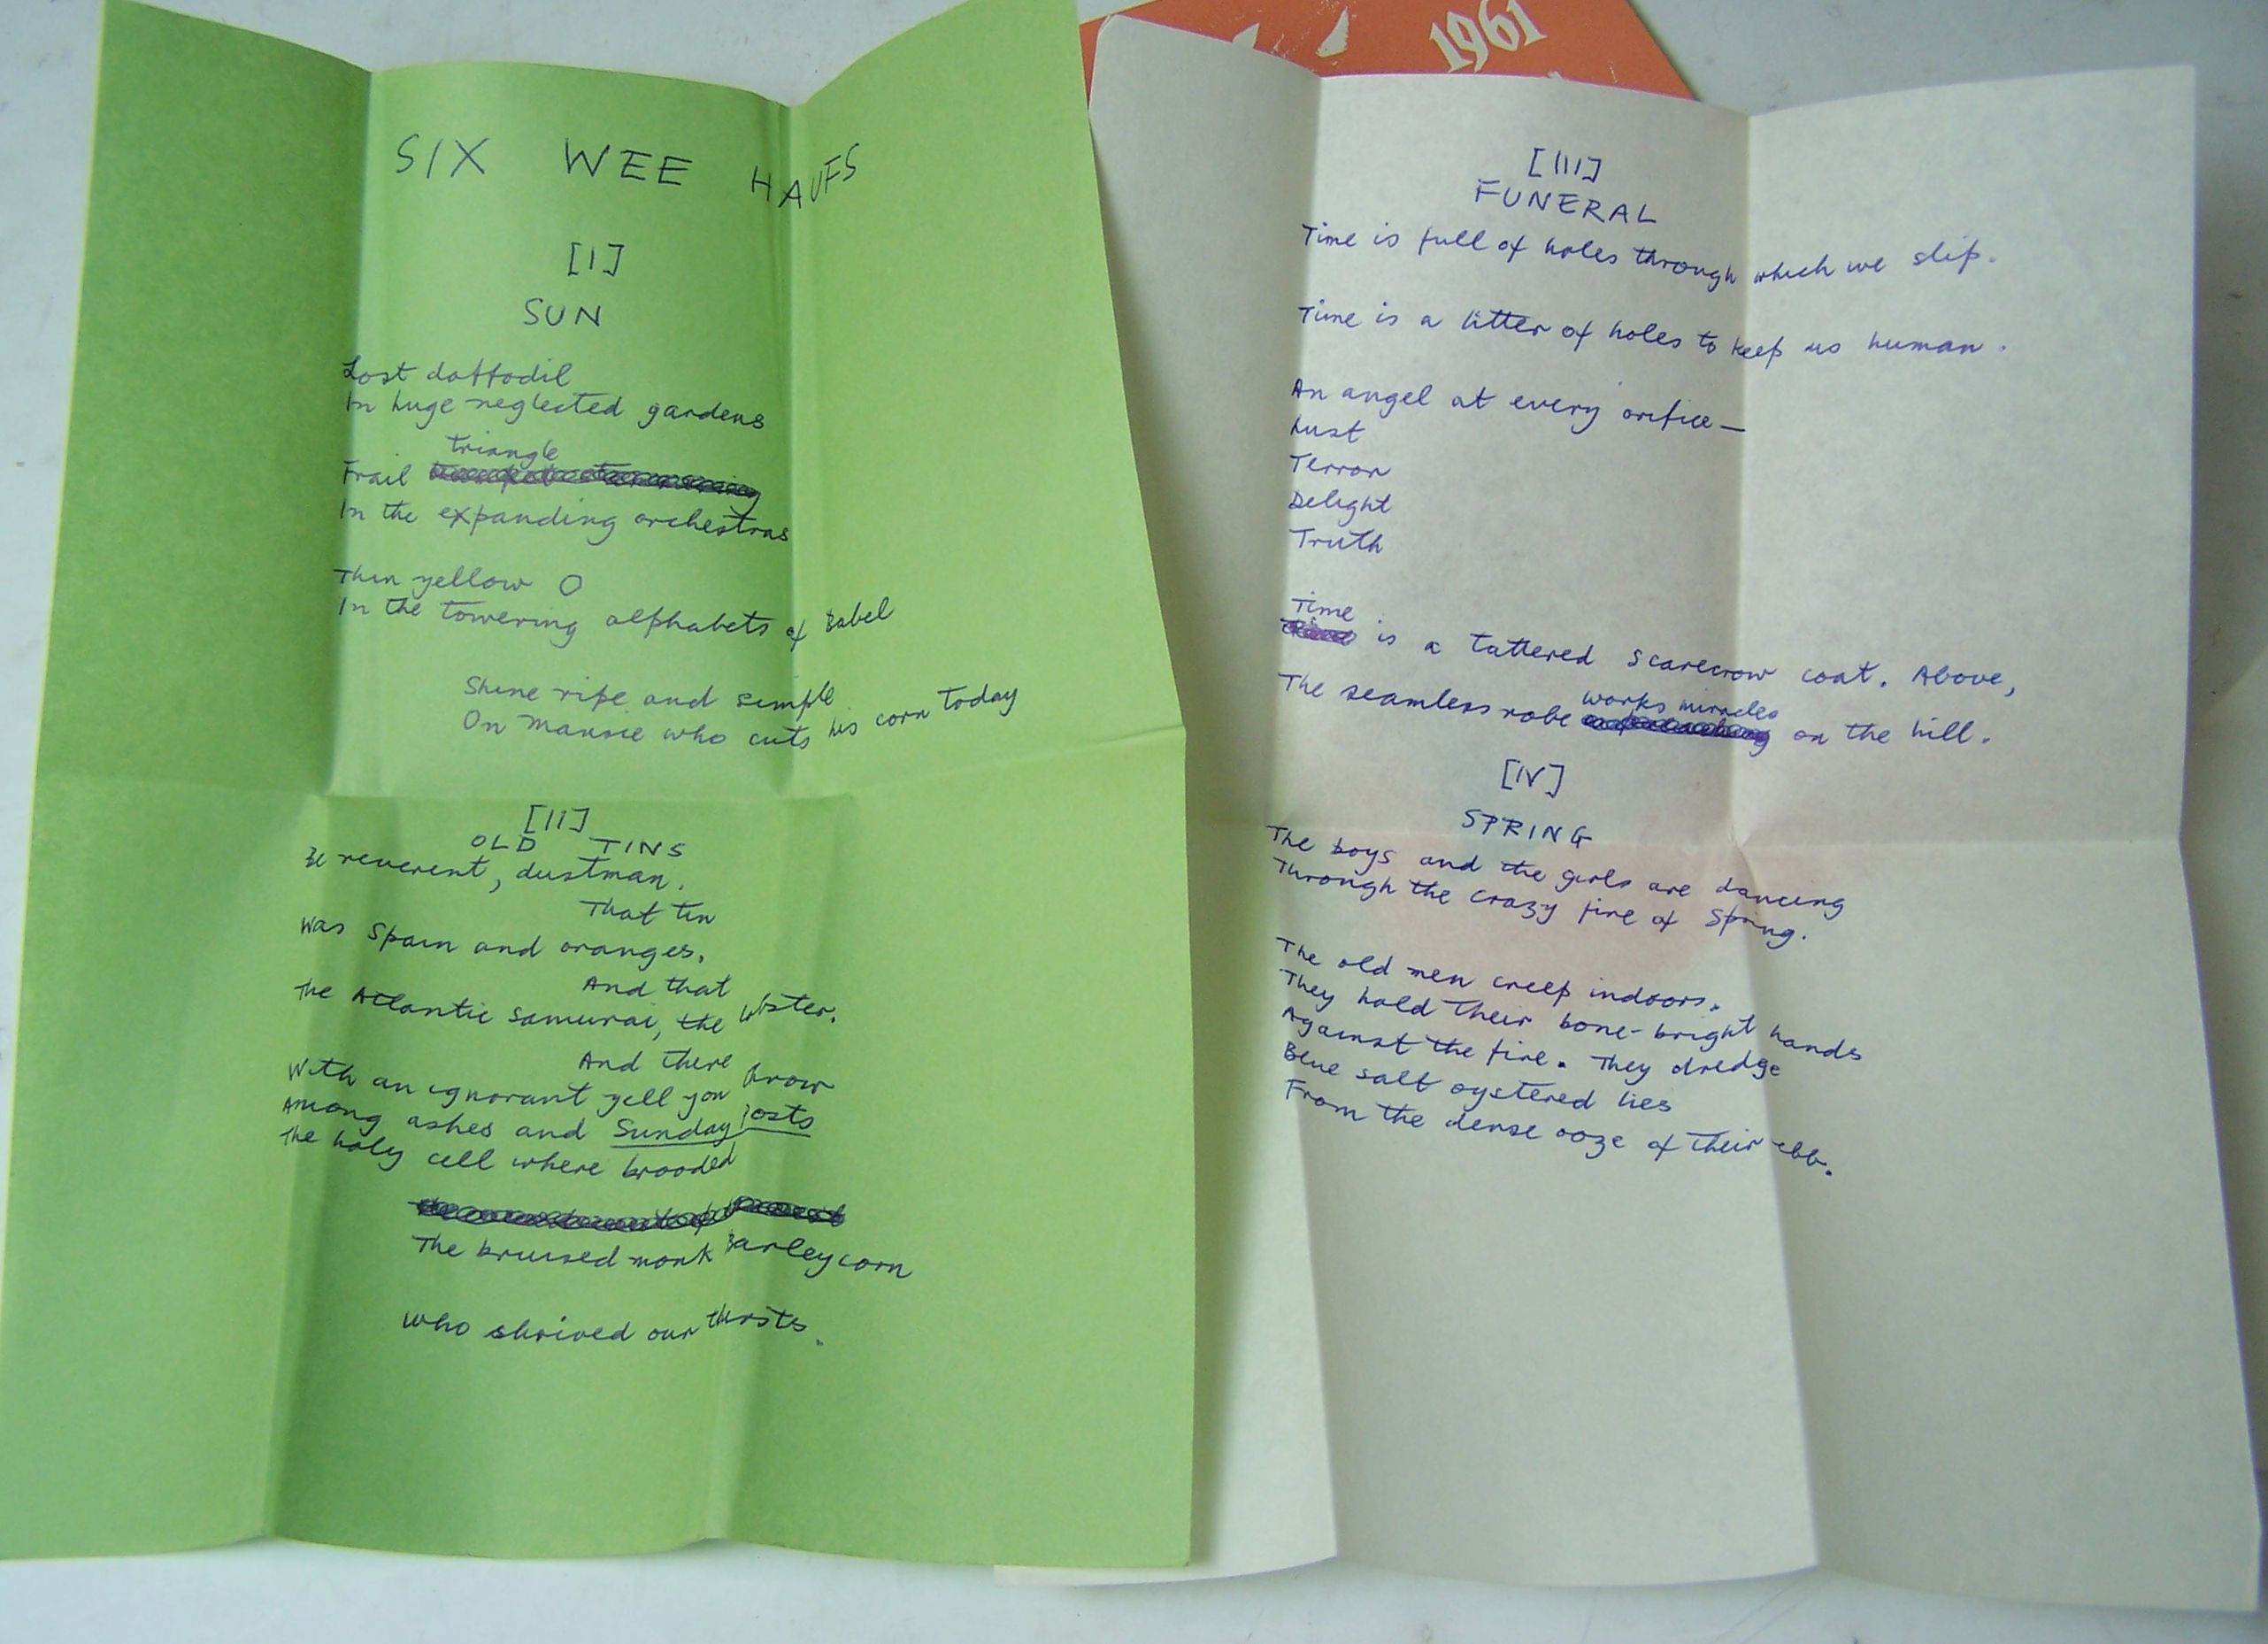 SIX WEE HAUFS
[I]
SUN
Lost daffodil
In huge neglected gardens
triangle
Frail
In the expanding orchestras
Thin yellow O
In the towering alphabets of Babel
Shine ripe and simple
On Mansie who cuts his corn today
[II]
OLD TINS
Be reverent, dustman.
That tin
Was Spain and oranges.
And that
The Atlantic samurai, the lobster.
And there
With an ignorant yell you throw
Among ashes and Sunday Posts
The holy cell where brooded
The bruised monk Barleycorn
Who shrived our thirsts.
1961
[III]
FUNERAL
Time is full of holes through which we slip.
Time is a litter of holes to keep us human.
An angel at every orifice—
Lust
Terror
Delight
Truth
Time
is a tattered scarecrow coat. Above,
works miracles
The seamless robe on the hill.
[IV]
SPRING
The boys and the girls are dancing
Through the crazy fire of Spring.
The old men creep indoors.
They hold their bone-bright hands
Against the fire. They dredge
Blue salt oystered lies
From the dense ooze of their ebb.